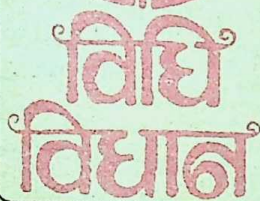 विधि
विधान